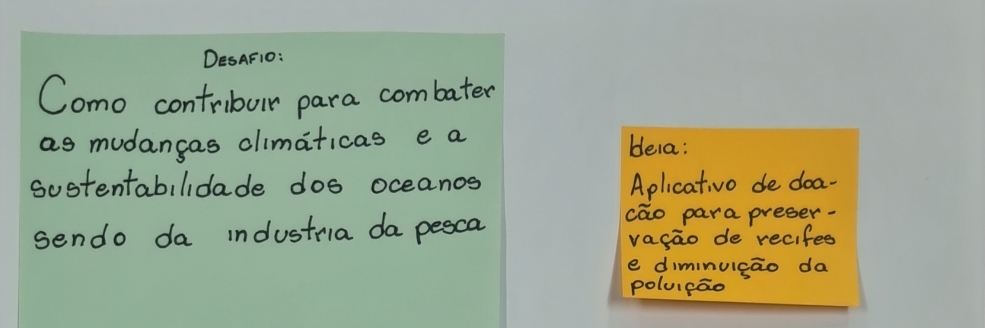 DESAFIO:
Como contribuir para combater
as mudanças climáticas e a
sustentabilidade dos oceanos
sendo da industria da pesca
Ideia:
Aplicativo de doa-
cão para preser-
vação de recifes
e diminuição da
poluição